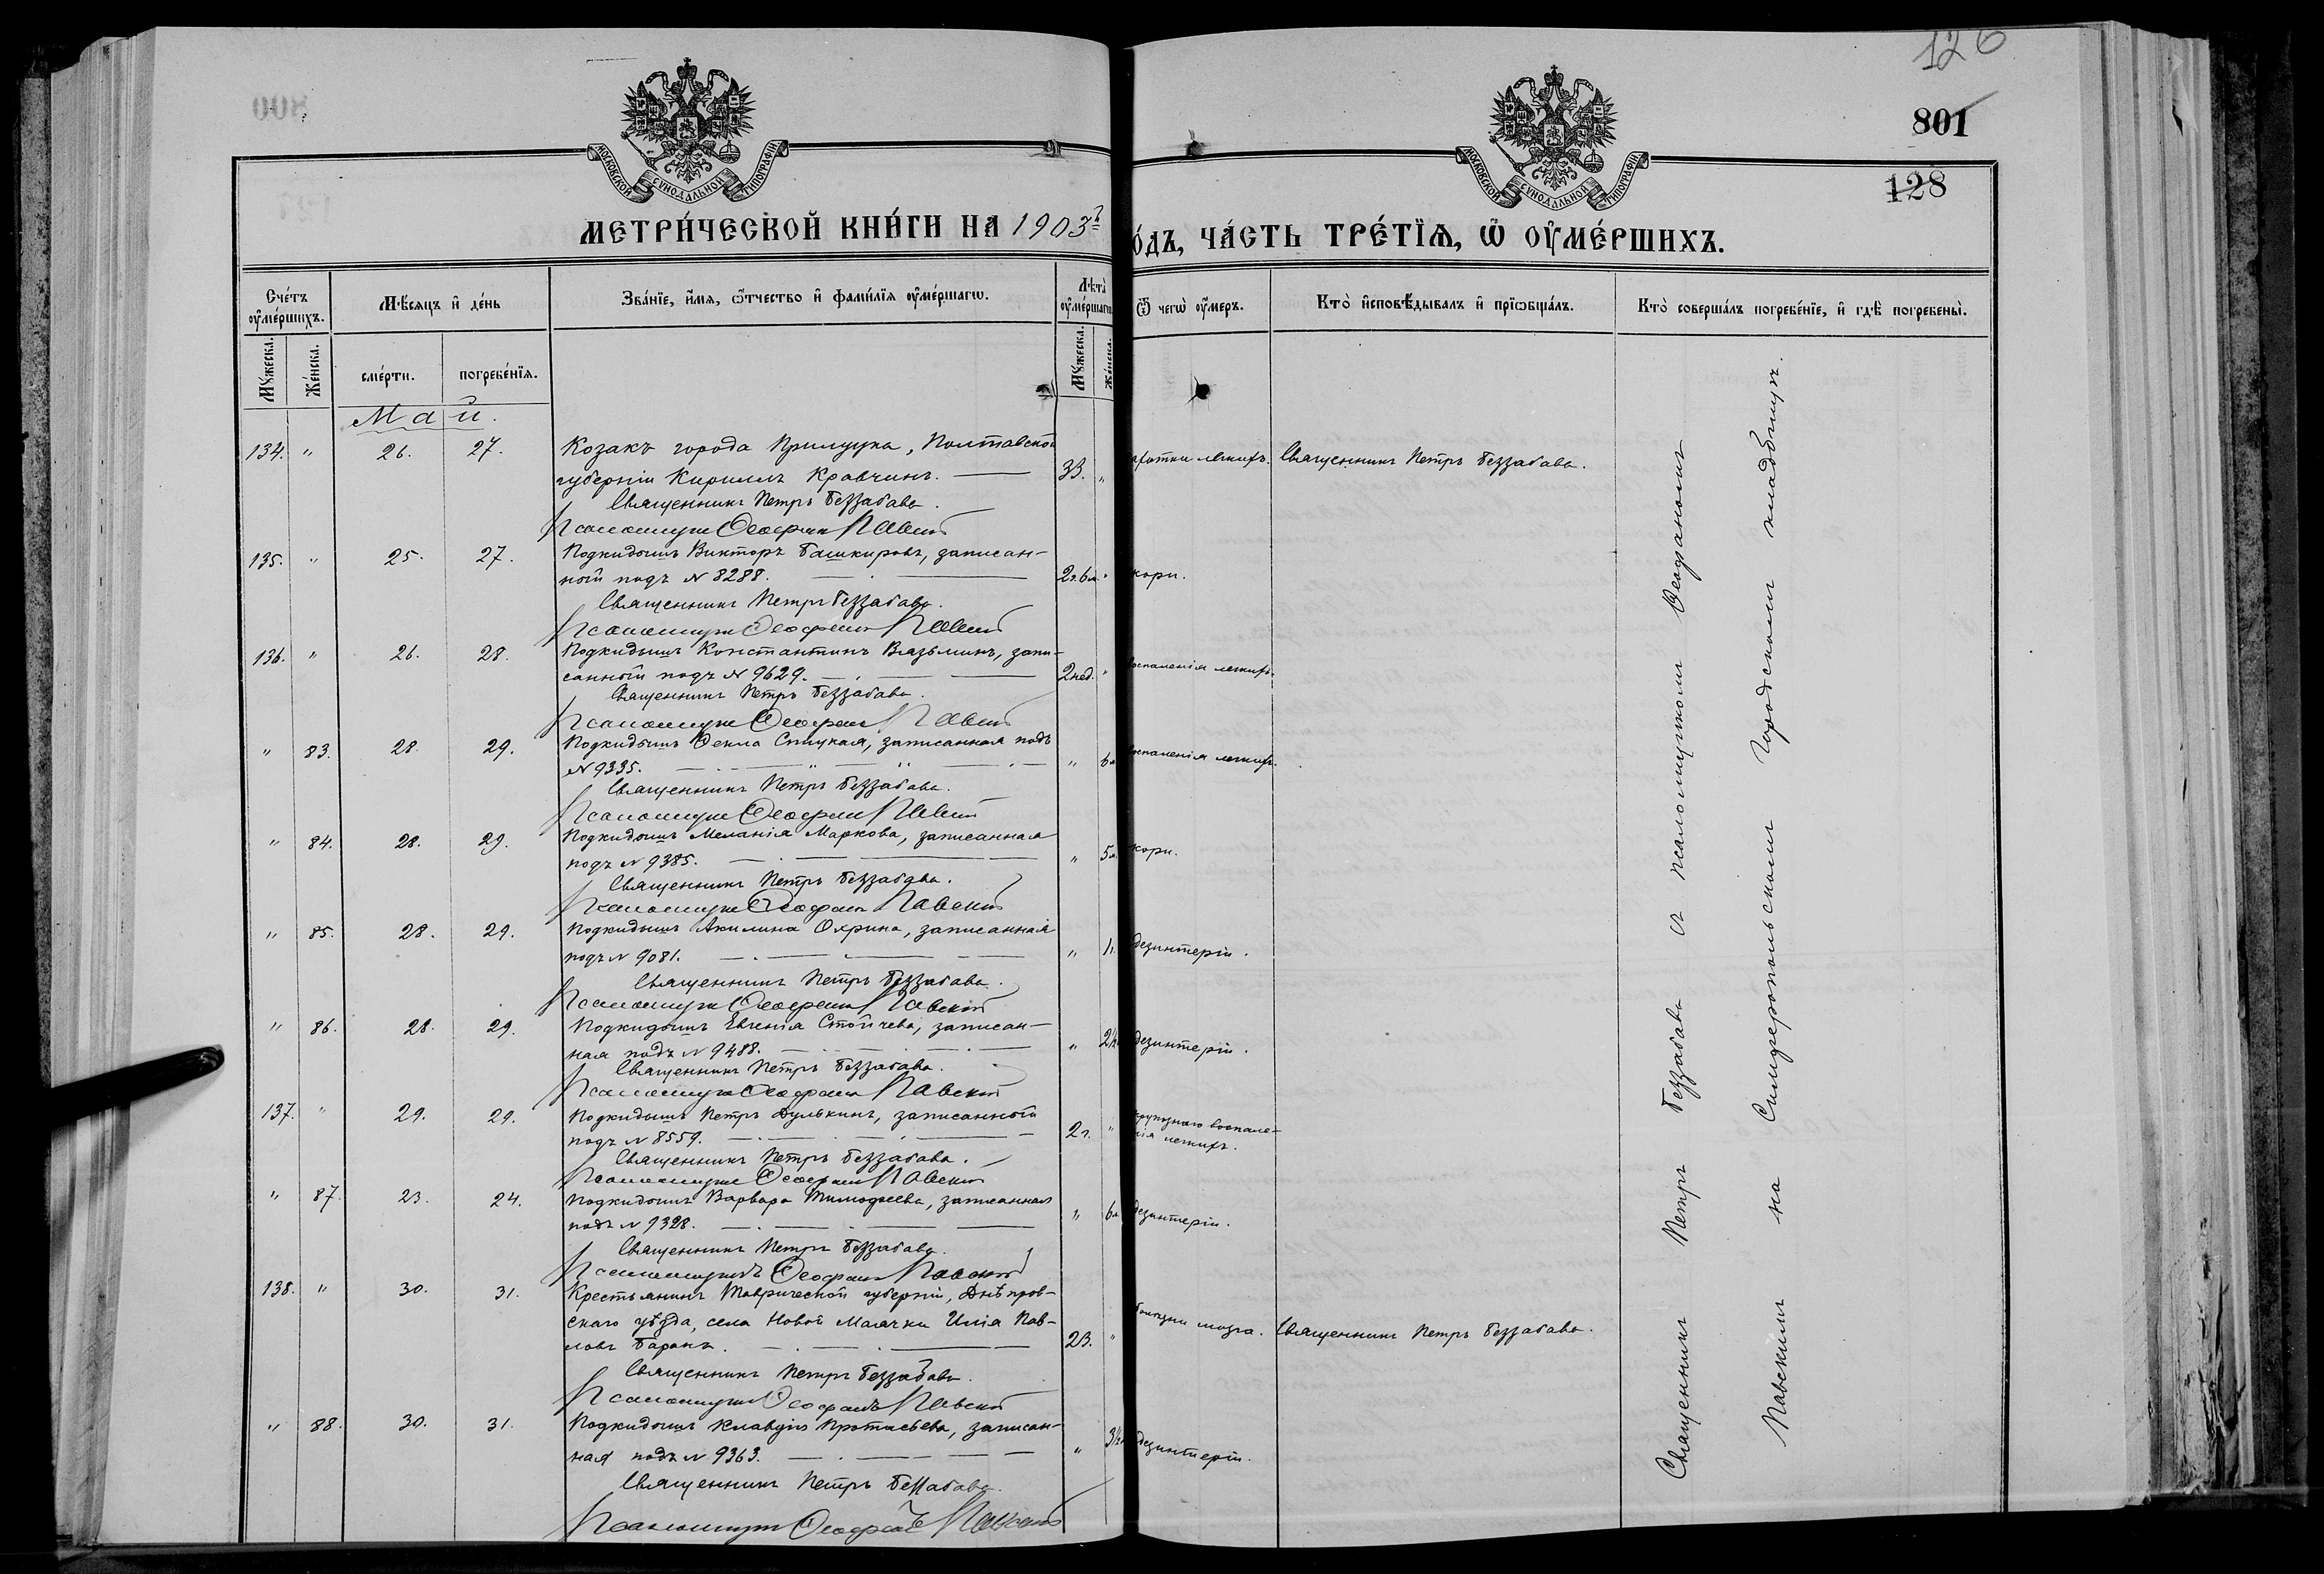 126
801
128
МОСКОВСКОЙ СѴНОДАЛЬНОЙ ТИПОГРАФІИ
МОСКОВСКОЙ СѴНОДАЛЬНОЙ ТИПОГРАФІИ
МЕТРИ́ЧЕСКОЙ КНИ́ГИ НА 1903й
О́ДЪ, ЧА́СТЬ ТРЕ́ТЇѦ, Ѽ ОУ҆МЕ́РШИХЪ.
Сче́тъ оу҆ме́ршихъ.
Мѣ́сяцъ и҆ де́нь
Зва́нїе, и҆́мѧ, ѻ҆́тчество и҆ фами́лїѧ оу҆ме́ршагѡ.
Лѣта̀ оу҆ме́ршагѡ
Ѿ чегѡ̀ оу҆́меръ.
Кто̀ и҆сповѣ́дывалъ и҆ прїѡбща́лъ.
Кто̀ соверша́лъ погребе́нїе, и҆ гдѣ̀ погребены̀.
Мꙋ́жеска. Же́нска.
сме́рти. погребе́нїѧ.
Мꙋ́жеска. Же́нска.
Май.
134. " 26. 27. Козакъ города Прилуки, Полтавской
губерніи Кириллъ Кравчинъ. 33. " чахотки легкихъ. Священникъ Петръ Беззабава.
Священникъ Петръ Беззабава.
Псаломщикъ Ѳеофанъ Павскій
135. " 25. 27. Подкидышъ Викторъ Башкировъ, записан-
ный подъ № 8288. 2г.6м. " кори.
Священникъ Петръ Беззабава.
Псаломщикъ Ѳеофанъ Павскій
136. " 26. 28. Подкидышъ Константинъ Вязьминъ, запи-
санный подъ № 9629. 2 нед. " воспаленія легкихъ.
Священникъ Петръ Беззабава.
Псаломщикъ Ѳеофанъ Павскій
" 83. 28. 29. Подкидышъ Ѳекла Спицкая, записанная подъ
№ 9335. " 6м воспаленія легкихъ.
Священникъ Петръ Беззабава.
Псаломщикъ Ѳеофанъ Павскій
" 84. 28. 29. Подкидышъ Меланія Маркова, записанная
подъ № 9385. " 5м кори.
Священникъ Петръ Беззабава.
Псаломщикъ Ѳеофанъ Павскій
" 85. 28. 29. Подкидышъ Акилина Охрина, записанная
подъ № 9081. " 1г. дезинтеріи.
Священникъ Петръ Беззабава.
Псаломщикъ Ѳеофанъ Павскій
" 86. 28. 29. Подкидышъ Евгенія Стойчева, записан-
ная подъ № 9488. " 2½ дезинтеріи.
Священникъ Петръ Беззабава.
Псаломщикъ Ѳеофанъ Павскій
137. " 29. 29. Подкидышъ Петръ Дулькинъ, записанный
подъ № 8559. 2г. " крупознаго воспале-
нія легкихъ.
Священникъ Петръ Беззабава.
Псаломщикъ Ѳеофанъ Павскій
" 87. 23. 24. Подкидышъ Варвара Тимофеева, записанная
подъ № 9328. " 6м дезинтеріи.
Священникъ Петръ Беззабава.
Псаломщикъ Ѳеофанъ Павскій
138. " 30. 31. Крестьянинъ Таврической губерніи, Днѣпров-
скаго уѣзда, села Новой Маячки Илія Пав-
ловъ Баранъ. 23. " болѣзни мозга. Священникъ Петръ Беззабава.
Священникъ Петръ Беззабава.
Псаломщикъ Ѳеофанъ Павскій
" 88. 30. 31. Подкидышъ Клавдія Протасьева, записан-
ная подъ № 9363. " 3½ дезинтеріи.
Священникъ Петръ Беззабава.
Псаломщикъ Ѳеофанъ Павскій
Священникъ Петръ Беззабава и псаломщикомъ Ѳеофаномъ
Павскимъ на Симферопольскомъ городскомъ кладбищѣ.